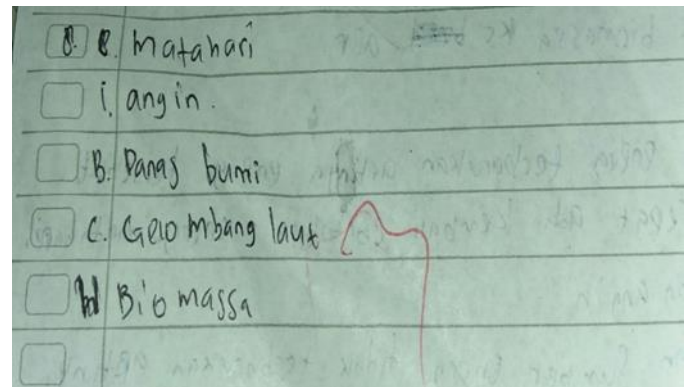 8. e. Matahari
i. angin.
B. Panas bumi
C. Gelombang laut
d Bio massa